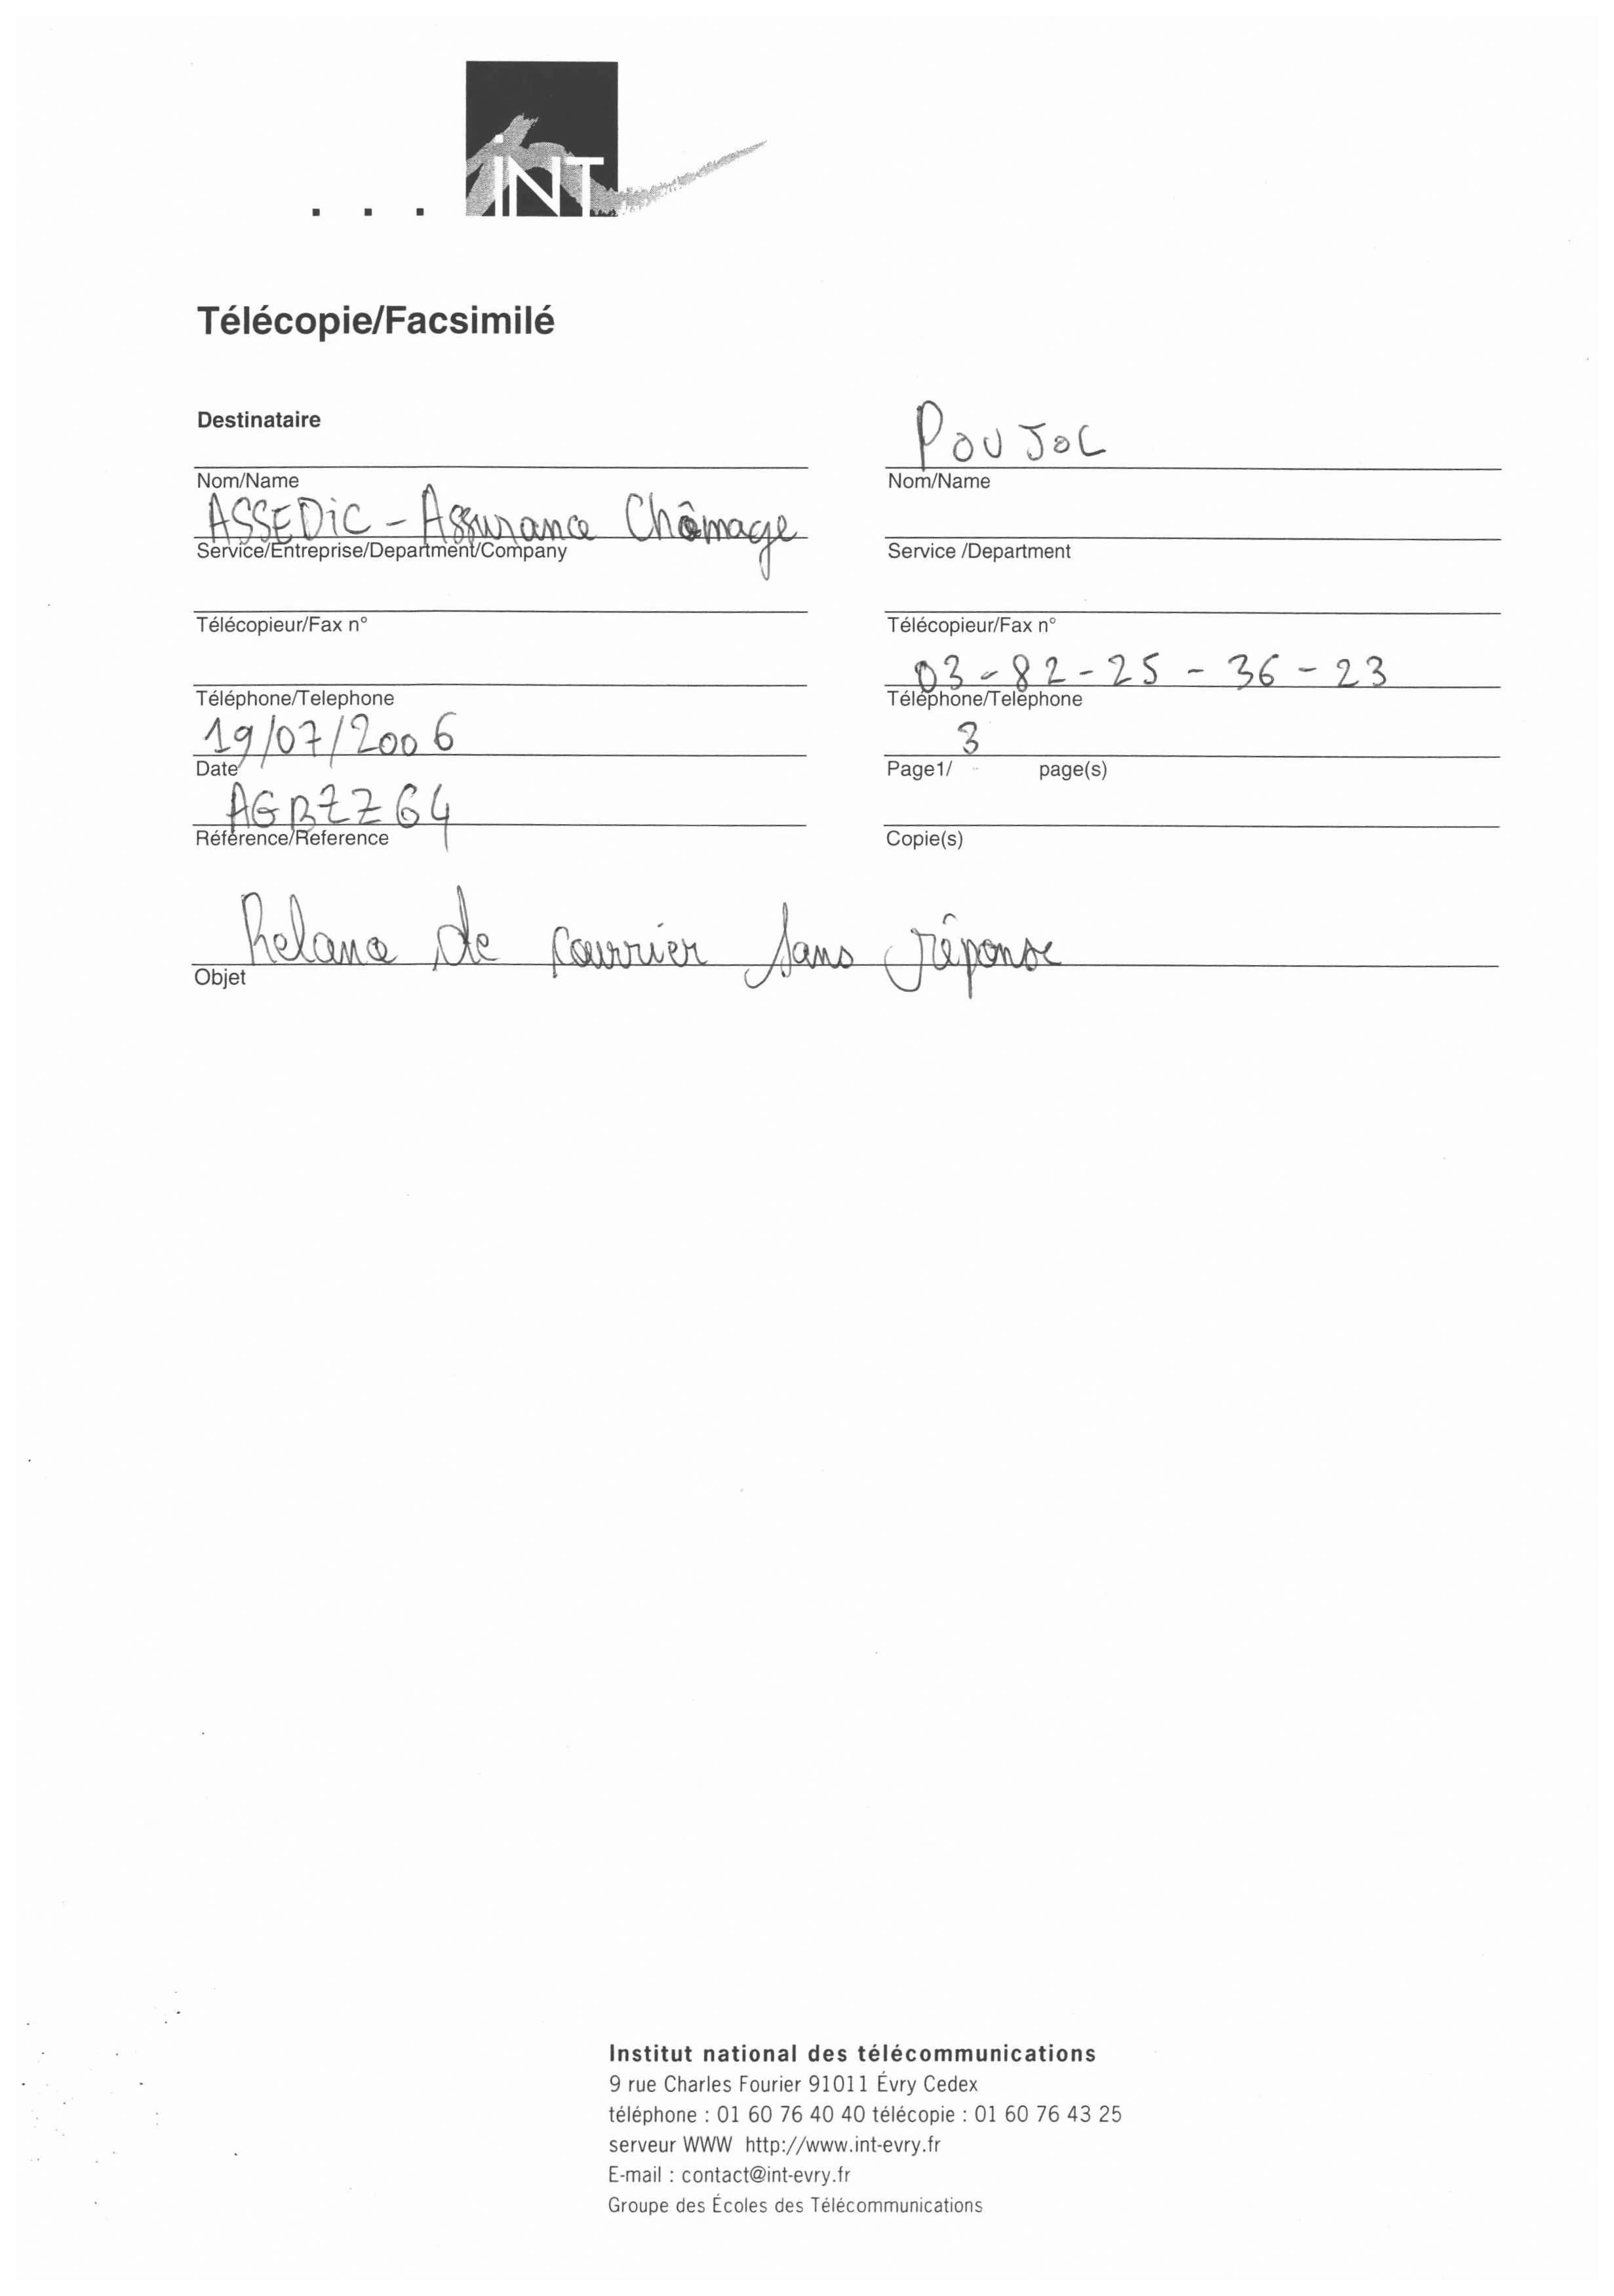 iNT
Télécopie/Facsimilé
Destinataire
Nom/Name
ASSEDiC - Assurance Chômage
Service/Entreprise/Department/Company
Télécopieur/Fax n°
Téléphone/Telephone
19/07/2006
Date
AGBZZ64
Référence/Reference
POUJOL
Nom/Name
Service /Department
Télécopieur/Fax n°
03-82-25-36-23
Téléphone/Telephone
3
Page1/ page(s)
Copie(s)
Relance de courrier sans réponse
Objet
Institut national des télécommunications
9 rue Charles Fourier 91011 Évry Cedex
téléphone : 01 60 76 40 40 télécopie : 01 60 76 43 25
serveur WWW http://www.int-evry.fr
E-mail : contact@int-evry.fr
Groupe des Écoles des Télécommunications